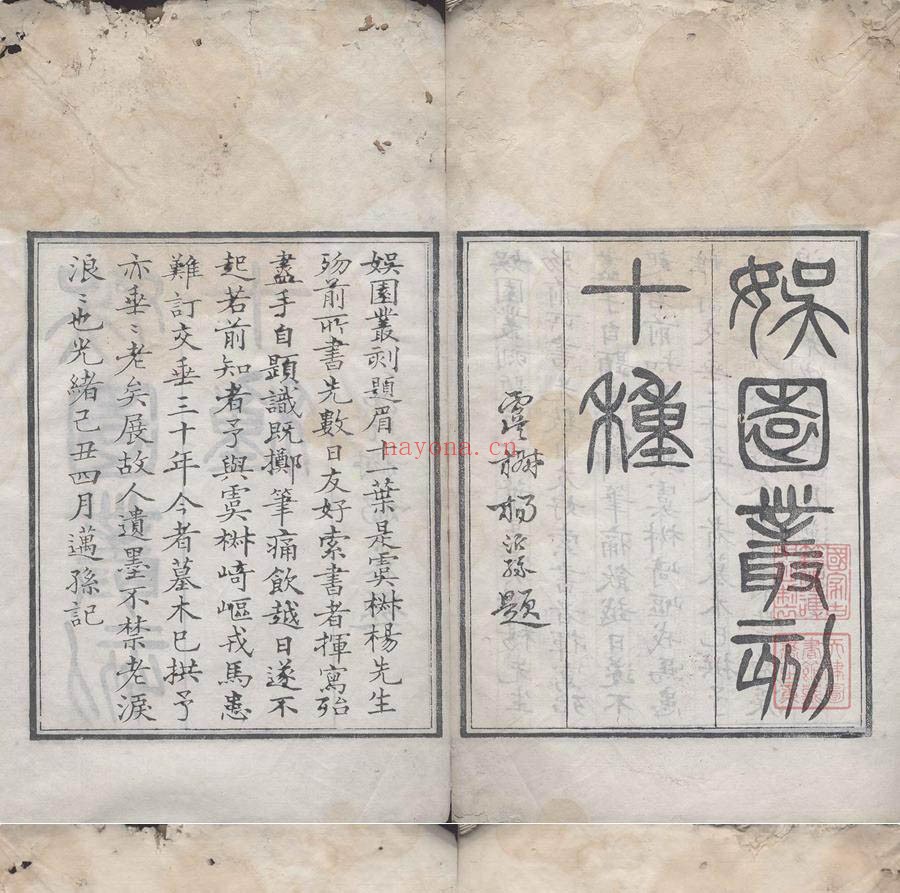 娛園叢刻
十種
虞椒楊沂孫題
娛園叢刻題眉十一葉是虞椒楊先生
歾前所書先數日友好索書者揮寫殆
盡手自題識既擲筆痛飲越日遂不
起若前知者予與虞椒崎嶇戎馬患
難訂交垂三十年今者墓木已拱予
亦垂〻老矣展故人遺墨不禁老淚
浪〻也光緒己丑四月邁孫記
nayona.cn